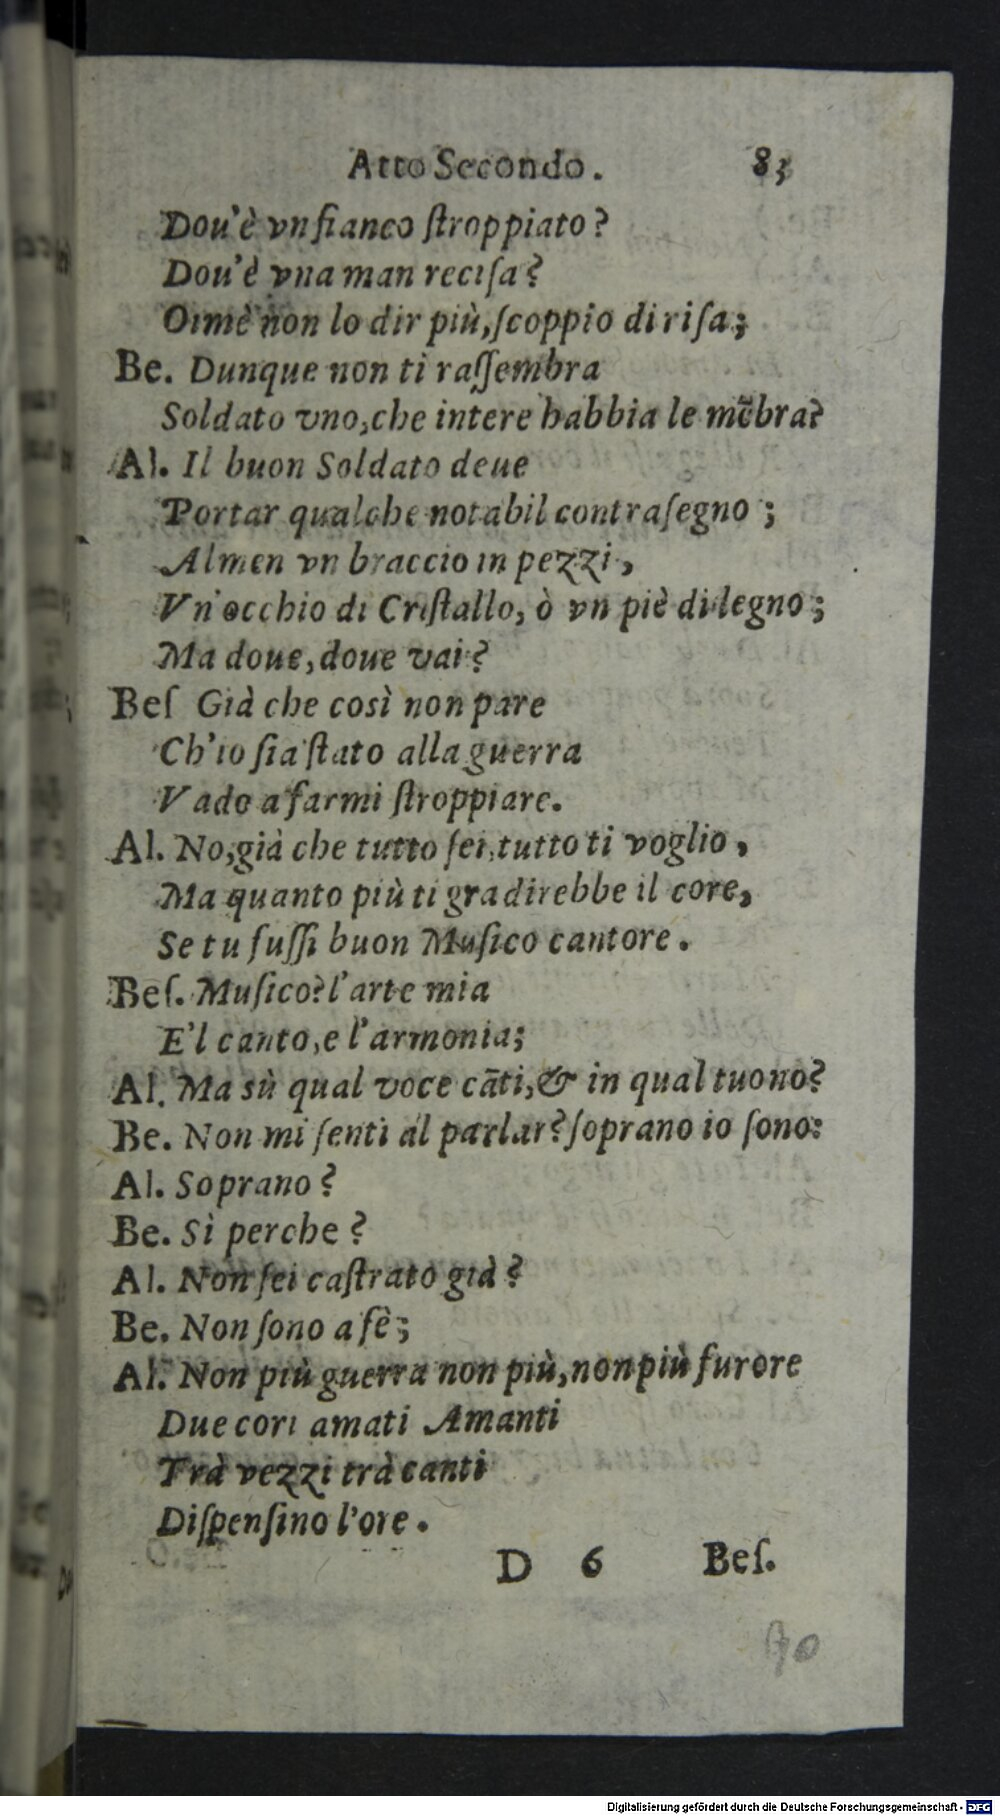 Atto Secondo. 83
Dou'è vn fianco ſtroppiato?
Dou'è vna man reciſa?
Oimè non lo dir più,ſcoppio di riſa;
Be. Dunque non ti raſſembra
Soldato vno,che intere habbia le mẽbra?
Al. Il buon Soldato deue
Portar qualche notabil contraſegno ;
Almen vn braccio in pezzi,
Vn'occhio di Criſtallo, ò vn piè di legno ;
Ma doue,doue vai?
Beſ Già che così non pare
Ch'io ſia ſtato alla guerra
Vado a farmi ſtroppiare.
Al. No,già che tutto ſei,tutto ti voglio ,
Ma quanto più ti gradirebbe il core,
Se tu fuſſi buon Muſico cantore .
Beſ. Muſico? l'arte mia
E'l canto,e l'armonia;
Al. Ma sù qual voce cãti,& in qual tuono?
Be. Non mi ſenti al parlar?ſoprano io ſono:
Al. Soprano ?
Be. Sì perche ?
Al. Non ſei caſtrato già ?
Be. Non ſono a fè;
Al. Non più guerra non più,non più furore
Due cori amati Amanti
Trà vezzi trà canti
Diſpenſino l'ore .
D 6 Beſ.
Digitalisierung gefördert durch die Deutsche Forschungsgemeinschaft - DFG